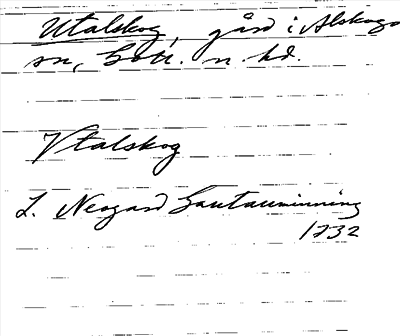 Utalskog, gård i Alskogs
sn, Gotl. n. hd.
Vtalskog
L. Neogard Gautauminning
1732